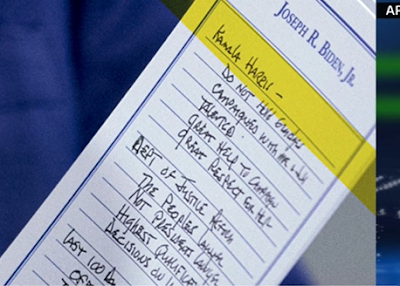 JOSEPH R. BIDEN, JR.
AP
KAMALA HARRIS –
DO NOT HOLD GRUDGES
CAMPAIGNED WITH ME & JILL
TALENTED
GREAT HELP TO CAMPAIGN
GREAT RESPECT FOR HER
DEPT OF JUSTICE
THE PEOPLES LAWYER
NOT PRESIDENTS LAWYER
HIGHEST
DECISIONS ON
LAST 100